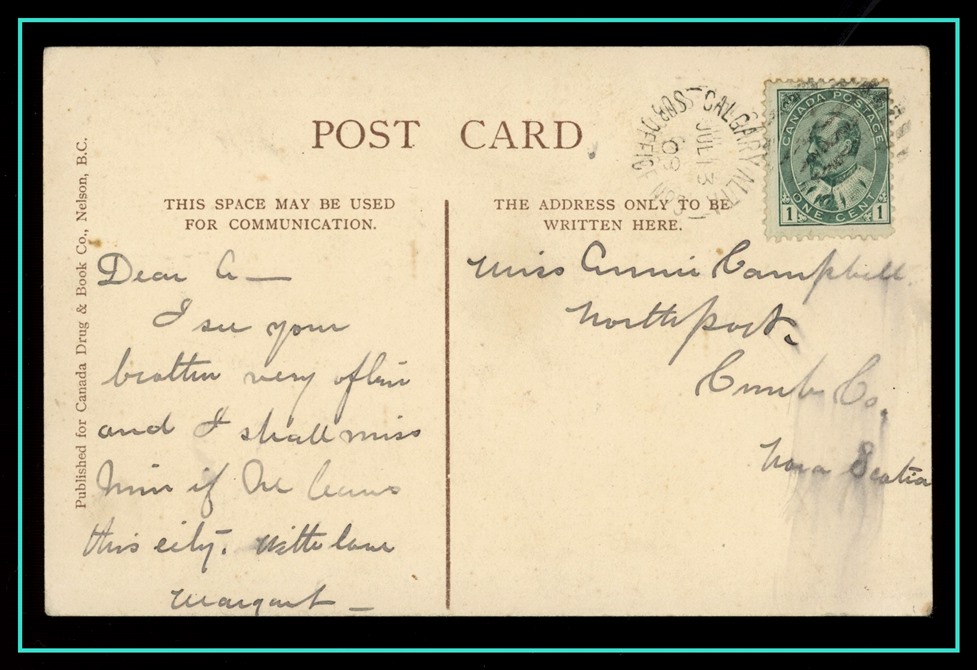 POST CARD
THIS SPACE MAY BE USED
FOR COMMUNICATION.
THE ADDRESS ONLY TO BE
WRITTEN HERE.
Published for Canada Drug & Book Co., Nelson, B.C.
CALGARY, ALTA
JUL 13
09
CANADA POSTAGE
1 ONE CENT 1
Dear A—
I see your
brother very often
and I shall miss
him if he leaves
this city. With love
Margaret —
Miss Annie Campbell
Northport.
Cumb Co.
Nova Scotia